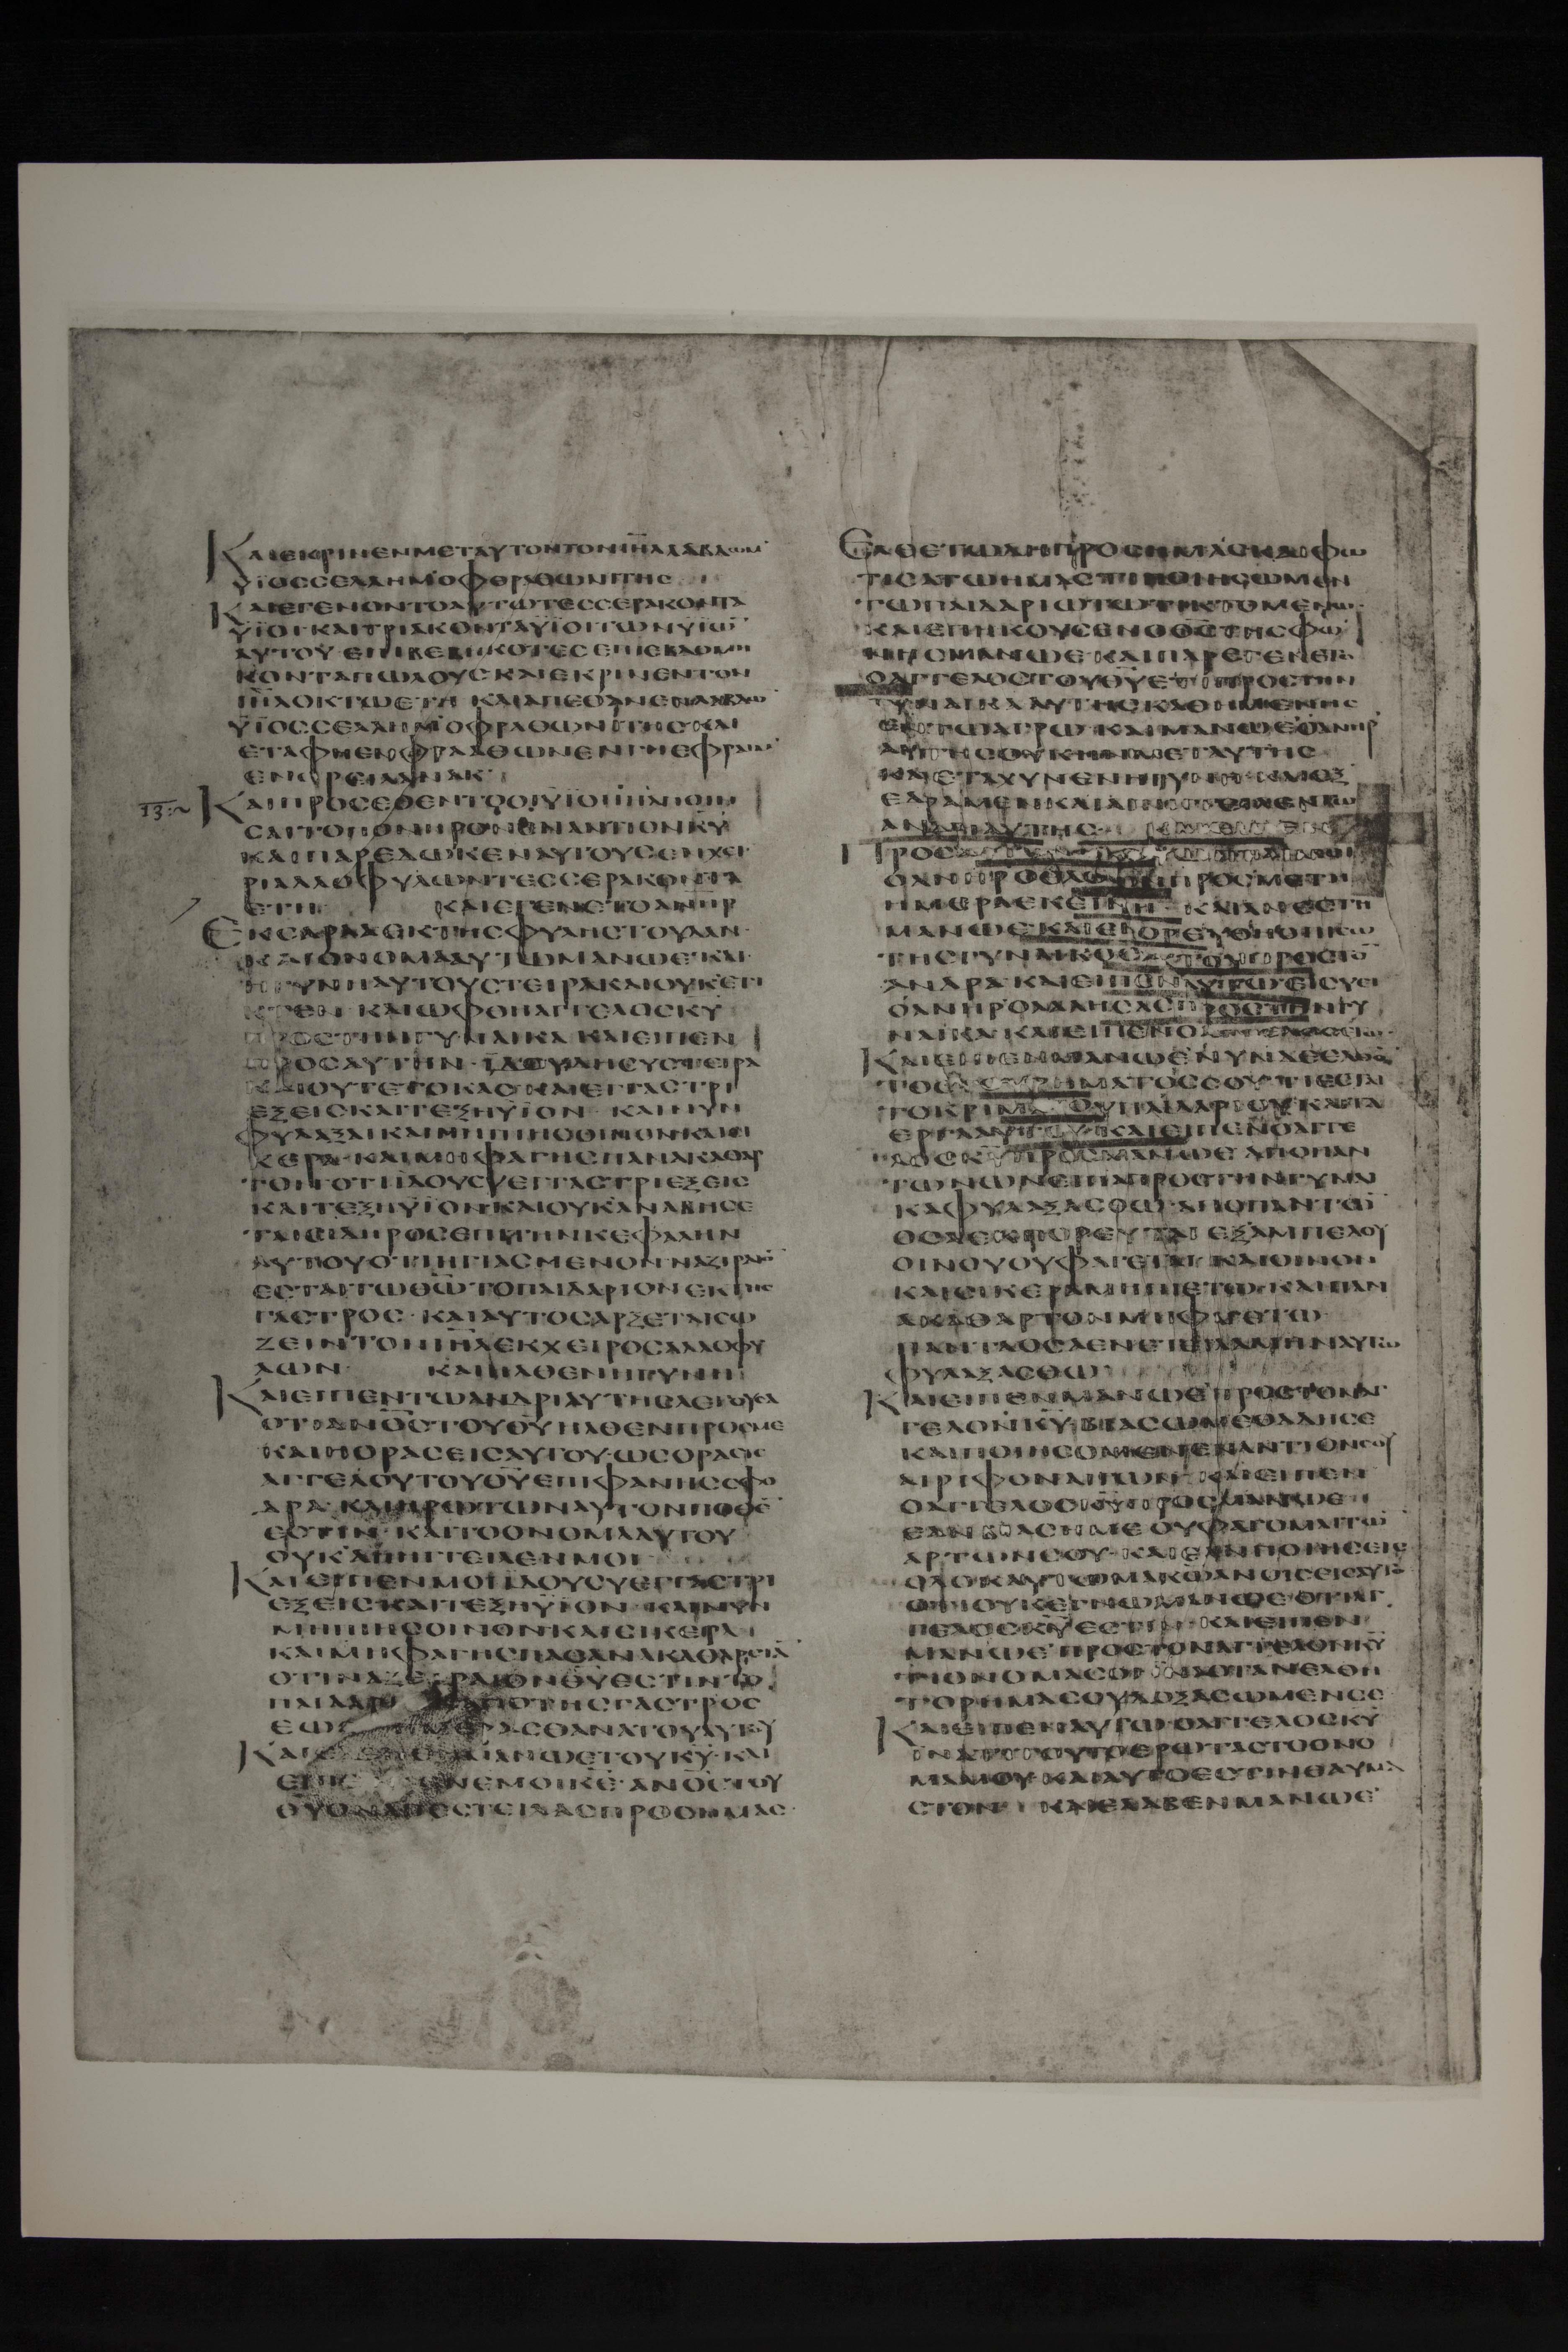 ΚΑΙΕΚΡΙΝΕΝΜΕΤΑΥΤΟΝΤΟΝΙΗΛΑΒΔΩΜ
ΥΙΟΣΣΕΛΛΗΜΟΦΘΡΑΘΩΝΙΤΗΣ
ΚΑΙΕΓΕΝΟΝΤΟΑΥΤΩΤΕΣΣΕΡΑΚΟΝΤΑ
ΥΙΟΙΚΑΙΤΡΙΑΚΟΝΤΑΥΙΟΙΤΩΝΥΙΩ
ΑΥΤΟΥΕΠΙΒΕΒΗΚΟΤΕΣΕΠΙΕΒΔΟΜΗ
ΚΟΝΤΑΠΩΛΟΥΣΚΑΙΕΚΡΙΝΕΝΤΟΝ
ΙΗΛΟΚΤΩΕΤΗ ΚΑΙΑΠΕΘΑΝΕΝ
ΥΙΟΣΣΕΛΛΗΜΟΦΡΑΘΩΝΙΤΗΣΚΑΙ
ΕΤΑΦΗΕΝΦΡΑΑΘΩΝΕΝΓΗΕΦΡΑΙΜ
ΕΝΟΡΕΙ
13
ΚΑΙΠΡΟΣΕΘΕΝΤΟΟΙΥΙΟΙΙΗΛΠΟΙΗ
ΣΑΙΤΟΠΟΝΗΡΟΝΕΝΑΝΤΙΟΝΚΥ
ΚΑΙΠΑΡΕΔΩΚΕΝΑΥΤΟΥΣΕΝΧΕΙ
ΡΙΑΛΛΟΦΥΛΩΝΤΕΣΣΕΡΑΚΟΝΤΑ
ΕΤΗ ΚΑΙΕΓΕΝΕΤΟΑΝΗΡ
ΕΚΣΑΡΑΑΕΚΤΗΣΦΥΛΗΣΤΟΥΔΑΝ
ΚΑΙΟΝΟΜΑΑΥΤΩΜΑΝΩΕΚΑΙ
ΗΓΥΝΗΑΥΤΟΥΣΤΕΙΡΑΚΑΙΟΥΚΕΤΙ
ΚΤΕΝ ΚΑΙΩΦΘΗΑΓΓΕΛΟΣΚΥ
ΠΡΟΣΤΗΝΓΥΝΑΙΚΑ ΚΑΙΕΙΠΕΝ
ΠΡΟΣΑΥΤΗΝ ΙΔΟΥΔΗΣΥΣΤΕΙΡΑ
ΚΑΙΟΥΤΕΤΟΚΑΣ ΚΑΙΕΓΓΑΣΤΡΙ
ΕΞΕΙΣΚΑΙΤΕΞΗΥΙΟΝ ΚΑΙΝΥΝ
ΦΥΛΑΞΑΙΚΑΙΜΗΠΙΗΣΟΙΝΟΝΚΑΙΣΙ
ΚΕΡΑ ΚΑΙΜΗΦΑΓΗΣΠΑΝΑΚΑΘΑΡ
ΤΟΝΟΤΙΙΔΟΥΣΥΕΓΓΑΣΤΡΙΕΞΕΙΣ
ΚΑΙΤΕΞΗΥΙΟΝΚΑΙΟΥΚΑΝΑΒΗΣΕ
ΤΑΙΣΙΔΗΡΟΣΕΠΙΤΗΝΚΕΦΑΛΗΝ
ΑΥΤΟΥΟΤΙΗΓΙΑΣΜΕΝΟΝΝΑΖΙΡΑΙΟ
ΕΣΤΑΙΤΩΘΩΤΟΠΑΙΔΑΡΙΟΝΕΚΤΗΣ
ΓΑΣΤΡΟΣ ΚΑΙΑΥΤΟΣΑΡΞΕΤΑΙΣΩ
ΖΕΙΝΤΟΝΙΗΛΕΚΧΕΙΡΟΣΑΛΛΟΦΥ
ΛΩΝ ΚΑΙΗΛΘΕΝΗΓΥΝΗ
ΚΑΙΕΙΠΕΝΤΩΑΝΔΡΙΑΥΤΗΣΛΕΓΟΥΣΑ
ΟΤΙΑΝΟΣΤΟΥΘΥΗΛΘΕΝΠΡΟΣΜΕ
ΚΑΙΗΟΡΑΣΕΙΣΑΥΤΟΥΩΣΟΡΑΣΙΣ
ΑΓΓΕΛΟΥΤΟΥΘΥΕΠΙΦΑΝΗΣΣΦΟ
ΔΡΑ ΚΑΙΗΡΩΤΩΝΑΥΤΟΝΠΟΘΕ
ΕΣΤΙΝ ΚΑΙΤΟΟΝΟΜΑΑΥΤΟΥ
ΟΥΚΑΠΗΓΓΕΙΛΕΝΜΟΙ
ΚΑΙΕΙΠΕΝΜΟΙΙΔΟΥΣΥΕΓΓΑΣΤΡΙ
ΕΞΕΙΣΚΑΙΤΕΞΗΥΙΟΝ ΚΑΙΝΥΝ
ΜΗΠΙΗΣΟΙΝΟΝΚΑΙΣΙΚΕΡΑ
ΚΑΙΜΗΦΑΓΗΣΠΑΣΑΝΑΚΑΘΑΡΣΙΑ
ΟΤΙΝΑΖΕΙΡΑΙΟΝΘΥΕΣΤΙΝΤΟ
ΠΑΙΔΑΡΙ ΑΠΟΤΗΣΓΑΣΤΡΟΣ
ΕΩΣ ΘΑΝΑΤΟΥΑΥΤΟΥ
ΚΑΙΕ ΜΑΝΩΕΤΟΥΚΥ ΚΑΙ
ΕΙΠΕ ΕΝΕΜΟΙΚΕ ΑΝΟΣΤΟΥ
ΘΥΟΝΑΠΕΣΤΕΙΛΑΣΠΡΟΣΗΜΑΣ
ΕΛΘΕΤΩΔΗΠΡΟΣΗΜΑΣΚΑΙΦΩ
ΤΙΣΑΤΩΗΜΑΣΤΙΠΟΙΗΣΩΜΕΝ
ΤΩΠΑΙΔΑΡΙΩΤΩΤΙΚΤΟΜΕΝΩ
ΚΑΙΕΠΗΚΟΥΣΕΝΟΘΣΤΗΣΦΩ
ΝΗΣΜΑΝΩΕ ΚΑΙΠΑΡΕΓΕΝΕΤΟ
ΟΑΓΓΕΛΟΣΤΟΥΘΥΕΤΙΠΡΟΣΤΗΝ
ΓΥΝΑΙΚΑΑΥΤΗΣΚΑΘΗΜΕΝΗΣ
ΕΝΤΩΑΓΡΩ ΚΑΙΜΑΝΩΕΟΑΝΗΡ
ΑΥΤΗΣΟΥΚΗΝΜΕΤΑΥΤΗΣ
ΚΑΙΕΤΑΧΥΝΕΝΗΓΥΝΗ ΚΑΙΕΞ
ΕΔΡΑΜΕΝΚΑΙΑΠΗΓΓΕΙΛΕΝΤΩ
ΑΝΔΡΙΑΥΤΗΣ
ΠΡΟΣ
ΟΑΝΗΡΟΕΛΘΩΝΠΡΟΣΜΕΤΗ
ΗΜΕΡΑΕΚΕΙΝΗ ΚΑΙΑΝΕΣΤΗ
ΜΑΝΩΕ ΚΑΙΕΠΟΡΕΥΘΗΟΠΙΣΩ
ΤΗΣΓΥΝΑΙΚΟΣ ΠΡΟΣΤΟ
ΑΝΔΡΑ ΚΑΙΕΙΠΕΝΑΥΤΩΕΙΣΥΕΙ
ΟΑΝΗΡΟΛΑΛΗΣΑΣΠΡΟΣΤΗΝΓΥ
ΝΑΙΚΑ ΚΑΙΕΙΠΕΝΟΑΓΓΕΛΟΣΕΓΩ
ΚΑΙΕΙΠΕΝΜΑΝΩΕΝΥΝΔΕΕΛΘΟ
ΤΟΣ ΡΗΜΑΤΟΣΣΟΥ ΤΙΕΣΤΑΙ
ΤΟΚΡΙΜΑ ΤΟΥΠΑΙΔΑΡΙΟΥΚΑΙΤΑ
ΕΡΓΑΑΥΤΟΥΚΑΙΕΙΠΕΝΟΑΓΓΕ
ΛΟΣΚΥΠΡΟΣΜΑΝΩΕ ΑΠΟΠΑΝ
ΤΩΝΩΝΕΙΠΑΠΡΟΣΤΗΝΓΥΝΑΙ
ΚΑΦΥΛΑΞΑΣΘΩ ΑΠΟΠΑΝΤΩ
ΟΣΑΕΚΠΟΡΕΥΕΤΑΙΕΞΑΜΠΕΛΟΥ
ΟΙΝΟΥΟΥΦΑΓΕΤΑΙ ΚΑΙΟΙΝΟΝ
ΚΑΙΣΙΚΕΡΑΜΗΠΙΕΤΩ ΚΑΙΠΑΝ
ΑΚΑΘΑΡΤΟΝΜΗΦΑΓΕΤΩ
ΠΑΝΤΑΟΣΑΕΝΕΤΕΙΛΑΜΗΝΑΥΤΩ
ΦΥΛΑΞΑΣΘΩ
ΚΑΙΕΙΠΕΝΜΑΝΩΕΠΡΟΣΤΟΝΑΓ
ΓΕΛΟΝΚΥ ΒΙΑΣΩΜΕΘΑΔΗΣΕ
ΚΑΙΠΟΙΗΣΟΜΕΝΕΝΑΝΤΙΟΝΣΟΥ
ΑΙΡΙΦΟΝΑΙΓΩΝ ΚΑΙΕΙΠΕΝ
ΟΑΓΓΕΛΟΣΚΥΠΡΟΣΜΑΝΩΕ
ΕΑΝΒΙΑΣΗΜΕ ΟΥΦΑΓΟΜΑΙΤΩ
ΑΡΤΩΝΣΟΥ ΚΑΙΕΑΝΠΟΙΗΣΕΙΣ
ΟΛΟΚΑΥΤΩΜΑΚΩΑΝΟΙΣΕΙΣΑΥΤΟ
ΟΤΙΟΥΚΕΓΝΩΜΑΝΩΕΟΤΙΑΓ
ΓΕΛΟΣΚΥΕΣΤΙΝ ΚΑΙΕΙΠΕΝ
ΜΑΝΩΕΠΡΟΣΤΟΝΑΓΓΕΛΟΝΚΥ
ΤΙΟΝΟΜΑΣΟΙ ΙΝΑΟΤΑΝΕΛΘΗ
ΤΟΡΗΜΑΣΟΥΔΟΞΑΣΩΜΕΝΣΕ
ΚΑΙΕΙΠΕΝΑΥΤΩΟΑΓΓΕΛΟΣΚΥ
ΙΝΑΤΙΤΟΥΤΟΕΡΩΤΑΣΤΟΟΝΟ
ΜΑΜΟΥ ΚΑΙΑΥΤΟΕΣΤΙΝΘΑΥΜΑ
ΣΤΟΝ ΚΑΙΕΛΑΒΕΝΜΑΝΩΕ